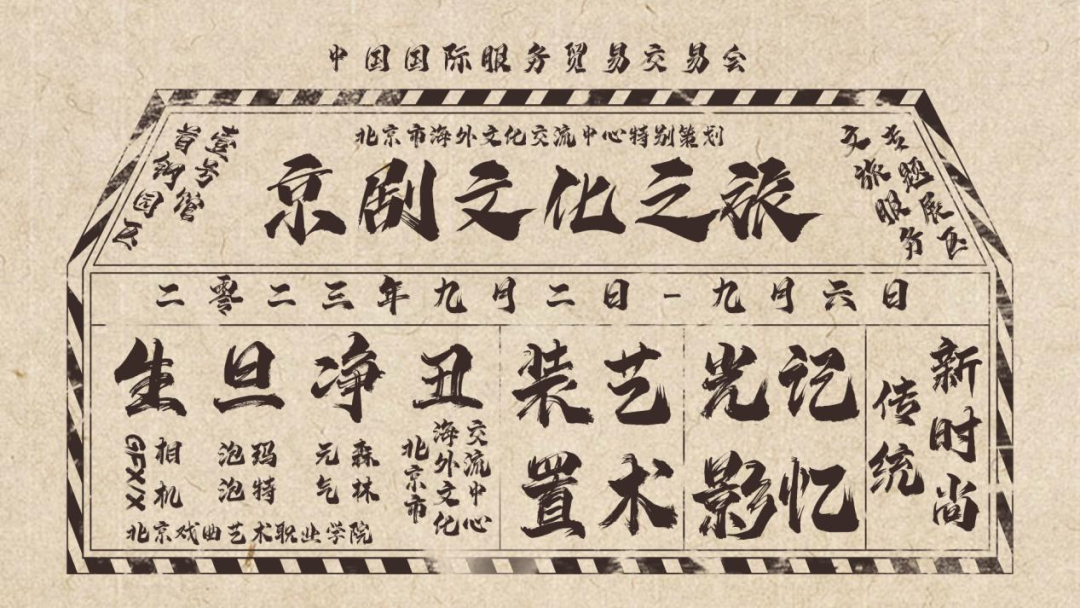 中国国际服务贸易交易会
北京市海外文化交流中心特别策划
京剧文化之旅
首钢园区
壹号馆
文旅服务
专题展区
二零二三年九月二日-九月六日
生旦净丑
GFX/X
相机
泡泡
玛特
元气
森林
北京市
海外文化
交流中心
北京戏曲艺术职业学院
装置
艺术
光影
记忆
传统
新时尚